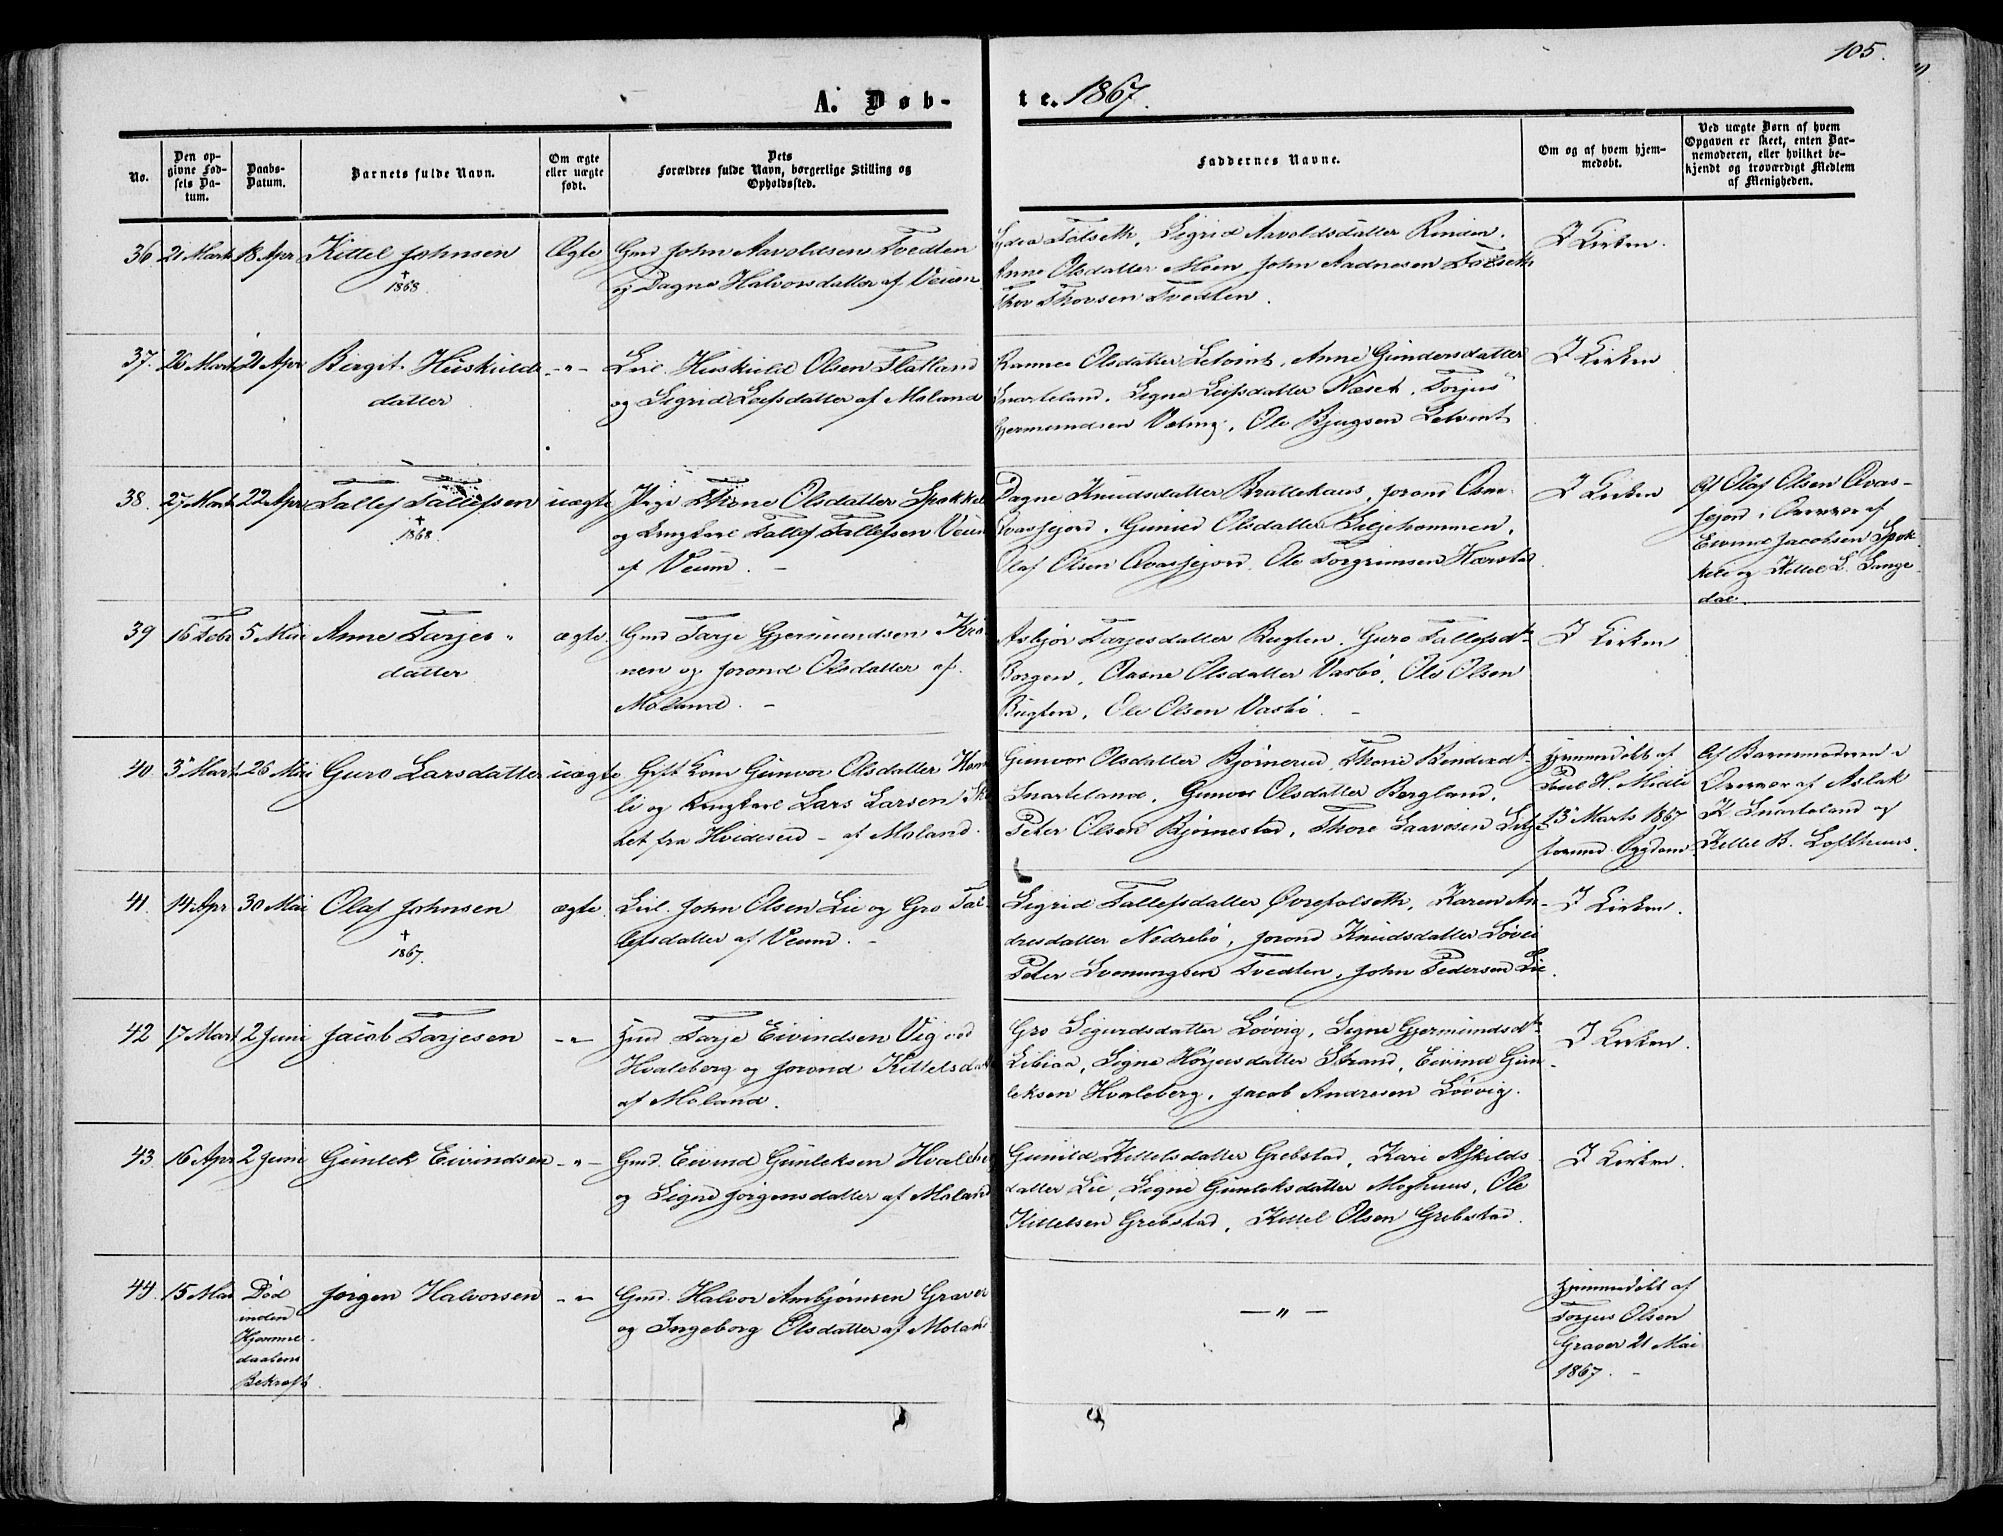 105.
A. Døb-
te. 1867.
No.
Den op-
givne Fød-
sels Da-
tum.
Daabs-
Datum.
Barnets fulde Navn.
Om ægte
eller uægte
født.
Dets
Forældres fulde Navn, borgerlige Stilling og
Opholdssted.
Faddernes Navne.
Om og af hvem hjem-
medøbt.
Ved uægte Børn af hvem
Opgaven er skeet, enten Bar-
nemoderen, eller hvilket be-
kjendt og troværdigt Medlem
af Menigheden.
36. 21 Marts 18 Apr Kittel Johnsen
† 1868
Ægte
Gmd John Aavoldsen Tvedten
og Dagne Halvorsdatter af Veum
Folseth, Sigrid Aavoldsdatter Rinden,
Anne Olsdatter Moen John Aadnesen Folseth
Thor Thorsen Tvedten.
I Kirken.
37. 26 Marts 21 Apr Birgit Huskulds
datter
-"-
Leil. Huskuld Olsen Flatland
og Sigrid Leifsdatter af Moland
Olsdatter Letvint, Anne Gundersdatter
Snarteland. Signe Leifsdatter Næset, Torjus
Gjermundsen Veting, Ole Bjugsen Letvint
I Kirken
38. 27 Marts 22 Apr Tallef Tallefsen
† 1868.
uægte
Pige Thone Olsdatter Spokkeli
og Ungkarl Tallef Tallefsen Veum
af Veum. -
Dagne Knudsdatter Brattehaus, Jorond Osm-
Qvasfjord. Gunild Olsdatter Liljehommen,
Olaf Olsen Qvasfjord, Ole Torgrimsen Kærstad
I Kirken
Af Olaf Olsen Qvas-
fjord i Overvær af
Eivind Jacobsen Spok-
keli og Kittel L. Lange-
dal.
39 16 Febr 5 Mai Anne Tarjes-
datter
ægte.
Gmd Tarje Gjermundsen Kro-
nen og Jorond Olsdatter af
Moland. -
Asbjør Tarjesdatter Bugten, Guro Tallefsdtr
Borgen, Aasne Olsdatter Vasbø, Ole Olsen
Bugten, Ole Olsen Vasbø. -
I Kirken
40. 3 Marts 26 Mai Guro Larsdatter
uægte
Gift Kone Gunvor Olsdatter
li og Ungkarl Lars Larsen
fra Hvideseid - af Moland.
Gunvor Olsdatter Bjørnerud Thone Bendixdtr
Snarteland, Gunvor Olsdatter Bergland,
Peter Olsen Bjørnestad, Thore Saavesen
Hjemmedøbt af
H. Midli
13 Marts 1867
Af Barnemoderen i
Overvær af Aslak
K. Snarteland og
Kittel B. Lofthuus.
41. 14 Apr 30 Mai Olaf Johnsen
† 1867.
ægte.
Leil. John Olsen Lie og Gro Tal-
lefsdatter af Veum. -
Sigrid Tallefsdatter Øvrefolseth, Karen An-
dresdatter Nedrebø, Jorond Knudsdatter
Peter Svenungsen Tvedten, John Pedersen Lie.
I Kirken.
42 17 Marts 2 Juni Jacob Tarjesen
-"-
Hmd Tarje Eivindsen Vig ved
Hvaleberg og Jorond Kittelsdatter
af Moland.
Gro Sigurdsdatter Løvvig, Signe Gjermundsdtr
Libiaa, Signe Hørjusdatter Strand, Eivind Gun-
leksen Hvaleberg, Jacob Andresen Løvvig.
I Kirken.
43 16 Apr 2 Juni Gunlek Eivindsen
-"-
Gmd. Eivind Gunleksen Hvaleberg
og Signe Jørgensdatter af Moland
Gunild Kittelsdatter Grebstad, Kari Askilds-
datter Lie, Signe Gunleksdatter Moghuus, Ole
Kittelsen Grebstad, Kittel Olsen Grebstad.
I Kirken.
44. 15 Mai Død
inden
Hjemme-
daabens
Bekræft.
Jørgen Halvorsen
-"-
Gmd. Halvor Ambjørnsen Graver
og Ingeborg Olsdatter af Moland
- " -
Hjemmedøbt af
Torjus Olsen
Graver 21 Mai
1867. -